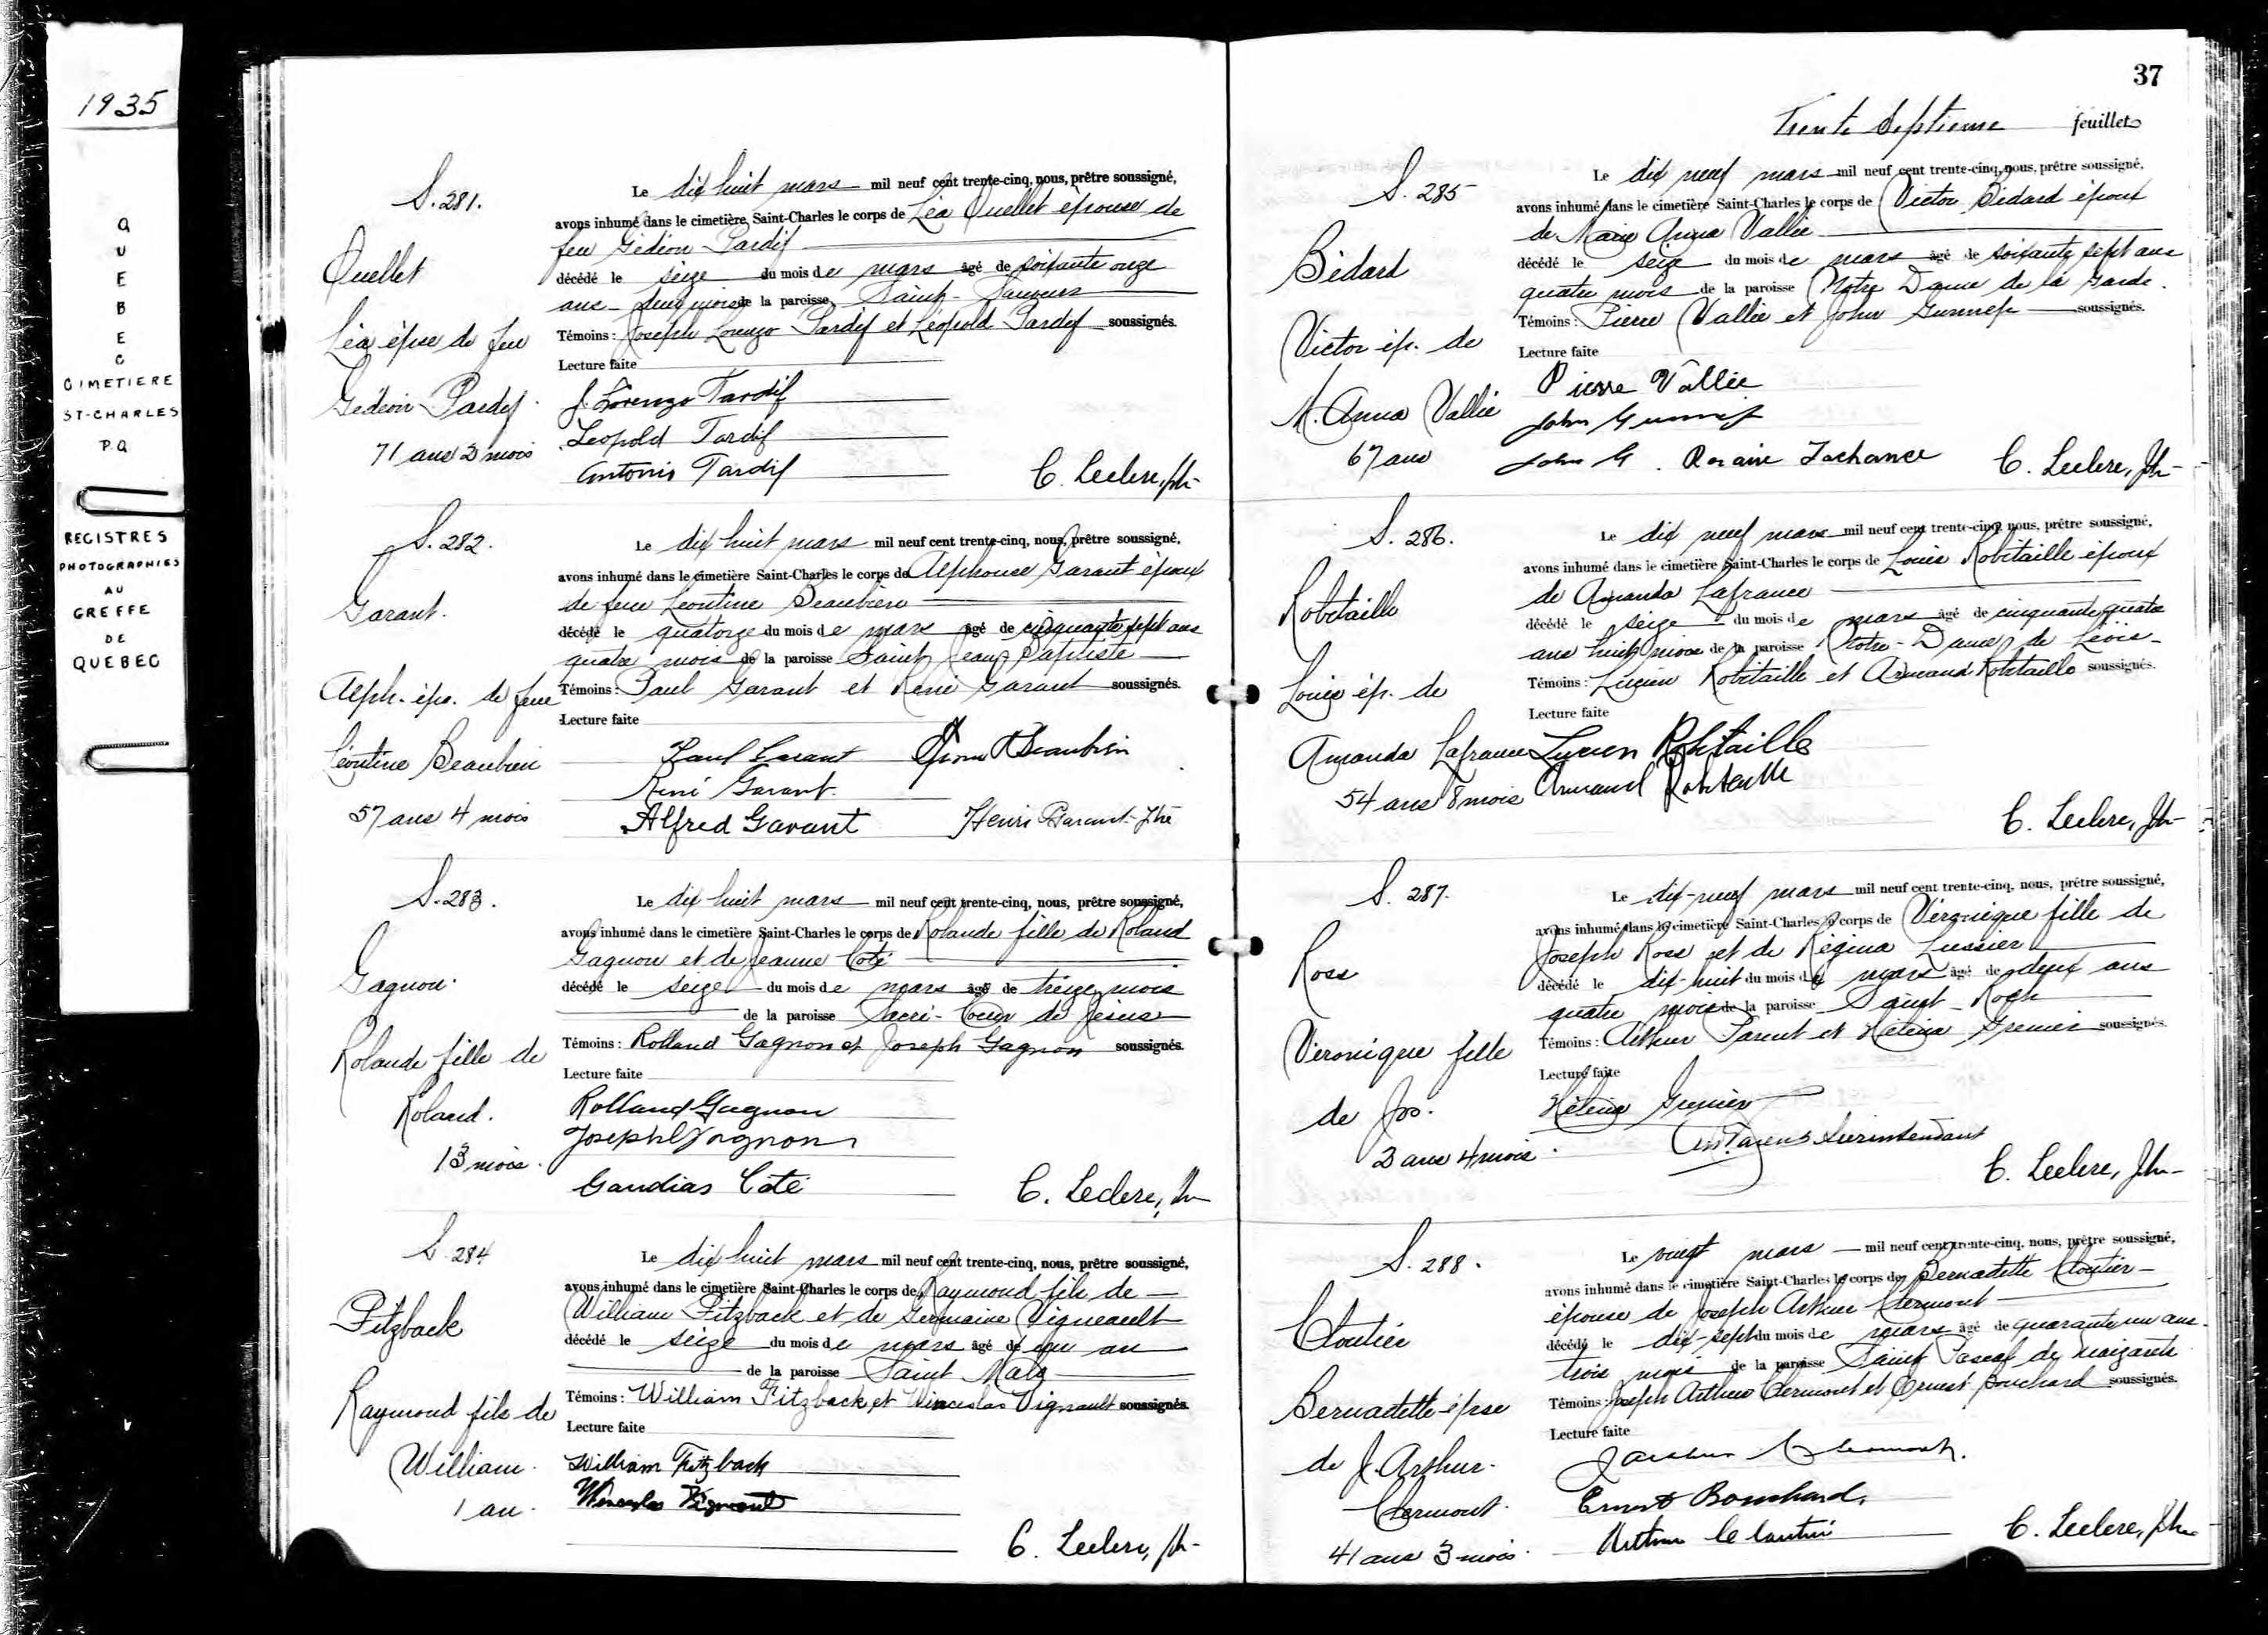 1935
QUEBEC
CIMETIERE
ST-CHARLES
P.Q
REGISTRES
PHOTOGRAPHIES
AU
GREFFE
DE
QUEBEC
S. 281.
Ouellet
Léa épse de feu
Gédéon Tardif
71 ans 2 mois
Le dix huit mars mil neuf cent trente-cinq, nous, prêtre soussigné,
avons inhumé dans le cimetière Saint-Charles le corps de Léa Ouellet épouse de
feu Gédéon Tardif
décédé le seize du mois de mars âgé de soixante onze
ans deux mois de la paroisse Saint-Sauveur
Témoins : Joseph Lorenzo Tardif et Léopold Tardif soussignés.
Lecture faite
J. Lorenzo Tardif
Leopold Tardif
Antonio Tardif
C. Leclerc, ptr
S. 282.
Garant.
Alph. épo. de feue
Léontine Beaubien
57 ans 4 mois
Le dix huit mars mil neuf cent trente-cinq, nous, prêtre soussigné,
avons inhumé dans le cimetière Saint-Charles le corps de Alphonse Garant époux
de feue Léontine Beaubien
décédé le quatorze du mois de mars âgé de cinquante sept ans
quatre mois de la paroisse Saint Jean Baptiste
Témoins : Paul Garant et René Garant soussignés.
Lecture faite
Paul Garant Beaubien
René Garant.
Alfred Garant Henri Garant Ptre
S. 283.
Gagnon.
Rolande fille de
Roland.
13 mois.
Le dix huit mars mil neuf cent trente-cinq, nous, prêtre soussigné,
avons inhumé dans le cimetière Saint-Charles le corps de Rolande fille de Roland
Gagnon et de Jeanne Coté
décédé le seize du mois de mars âgé de treize mois
de la paroisse Sacré-Coeur de Jésus
Témoins : Rolland Gagnon et Joseph Gagnon soussignés.
Lecture faite
Rolland Gagnon
Joseph Gagnon
Gaudias Coté
C. Leclerc, ptr
S. 284
Fitzback
Raymond fils de
William.
1 an.
Le dix huit mars mil neuf cent trente-cinq, nous, prêtre soussigné,
avons inhumé dans le cimetière Saint-Charles le corps de Raymond fils de
William Fitzback et de Germaine Vigneault
décédé le seize du mois de mars âgé de un an
de la paroisse Saint Malo
Témoins : William Fitzback et Winceslas Vignault soussignés.
Lecture faite
William Fitzback
Winceslas Vignault
C. Leclerc, ptr
37
Trente Septieme feuillet
S. 285
Bédard
Victor ép. de
M. Anna Vallée
67 ans
Le dix neuf mars mil neuf cent trente-cinq, nous, prêtre soussigné,
avons inhumé dans le cimetière Saint-Charles le corps de Victor Bédard époux
de Marie Anna Vallée
décédé le seize du mois de mars âgé de soixante sept ans
quatre mois de la paroisse Notre Dame de la Garde.
Témoins : Pierre Vallée et John soussignés.
Lecture faite
Pierre Vallée
John
John G. Rosaire Lachance
C. Leclerc, ptr
S. 286.
Robitaille
Louis ép. de
Amanda Lafrance
54 ans 8 mois
Le dix neuf mars mil neuf cent trente-cinq, nous, prêtre soussigné,
avons inhumé dans le cimetière Saint-Charles le corps de Louis Robitaille époux
de Amanda Lafrance
décédé le seize du mois de mars âgé de cinquante quatre
ans huit mois de la paroisse Notre-Dame de Lévis
Témoins : Lucien Robitaille et Armand Robitaille soussignés.
Lecture faite
Lucien Robitaille
Armand Robitaille
C. Leclerc, ptr
S. 287.
Ross
Véronique fille
de Jos.
2 ans 4 mois.
Le dix-neuf mars mil neuf cent trente-cinq, nous, prêtre soussigné,
avons inhumé dans le cimetière Saint-Charles le corps de Véronique fille de
Joseph Ross et de Régina Lussier
décédé le dix-huit du mois de mars âgé de deux ans
quatre mois de la paroisse Saint-Roch
Témoins : Arthur Parent et Hélèna Grenier soussignés.
Lecture faite
Hélèna Grenier
Art. Parent Surintendant
C. Leclerc, ptr
S. 288.
Cloutier
Bernadette épse
de J. Arthur.
Clermont.
41 ans 3 mois.
Le vingt mars mil neuf cent trente-cinq, nous, prêtre soussigné,
avons inhumé dans le cimetière Saint-Charles le corps de Bernadette Cloutier
épouse de Joseph Arthur Clermont
décédé le dix-sept du mois de mars âgé de quarante un ans
trois mois de la paroisse Saint Pascal de Maizerets
Témoins : Joseph Arthur Clermont et Ernest Bouchard soussignés.
Lecture faite
J Arthur Clermont.
Ernest Bouchard.
Arthur
C. Leclerc, ptr